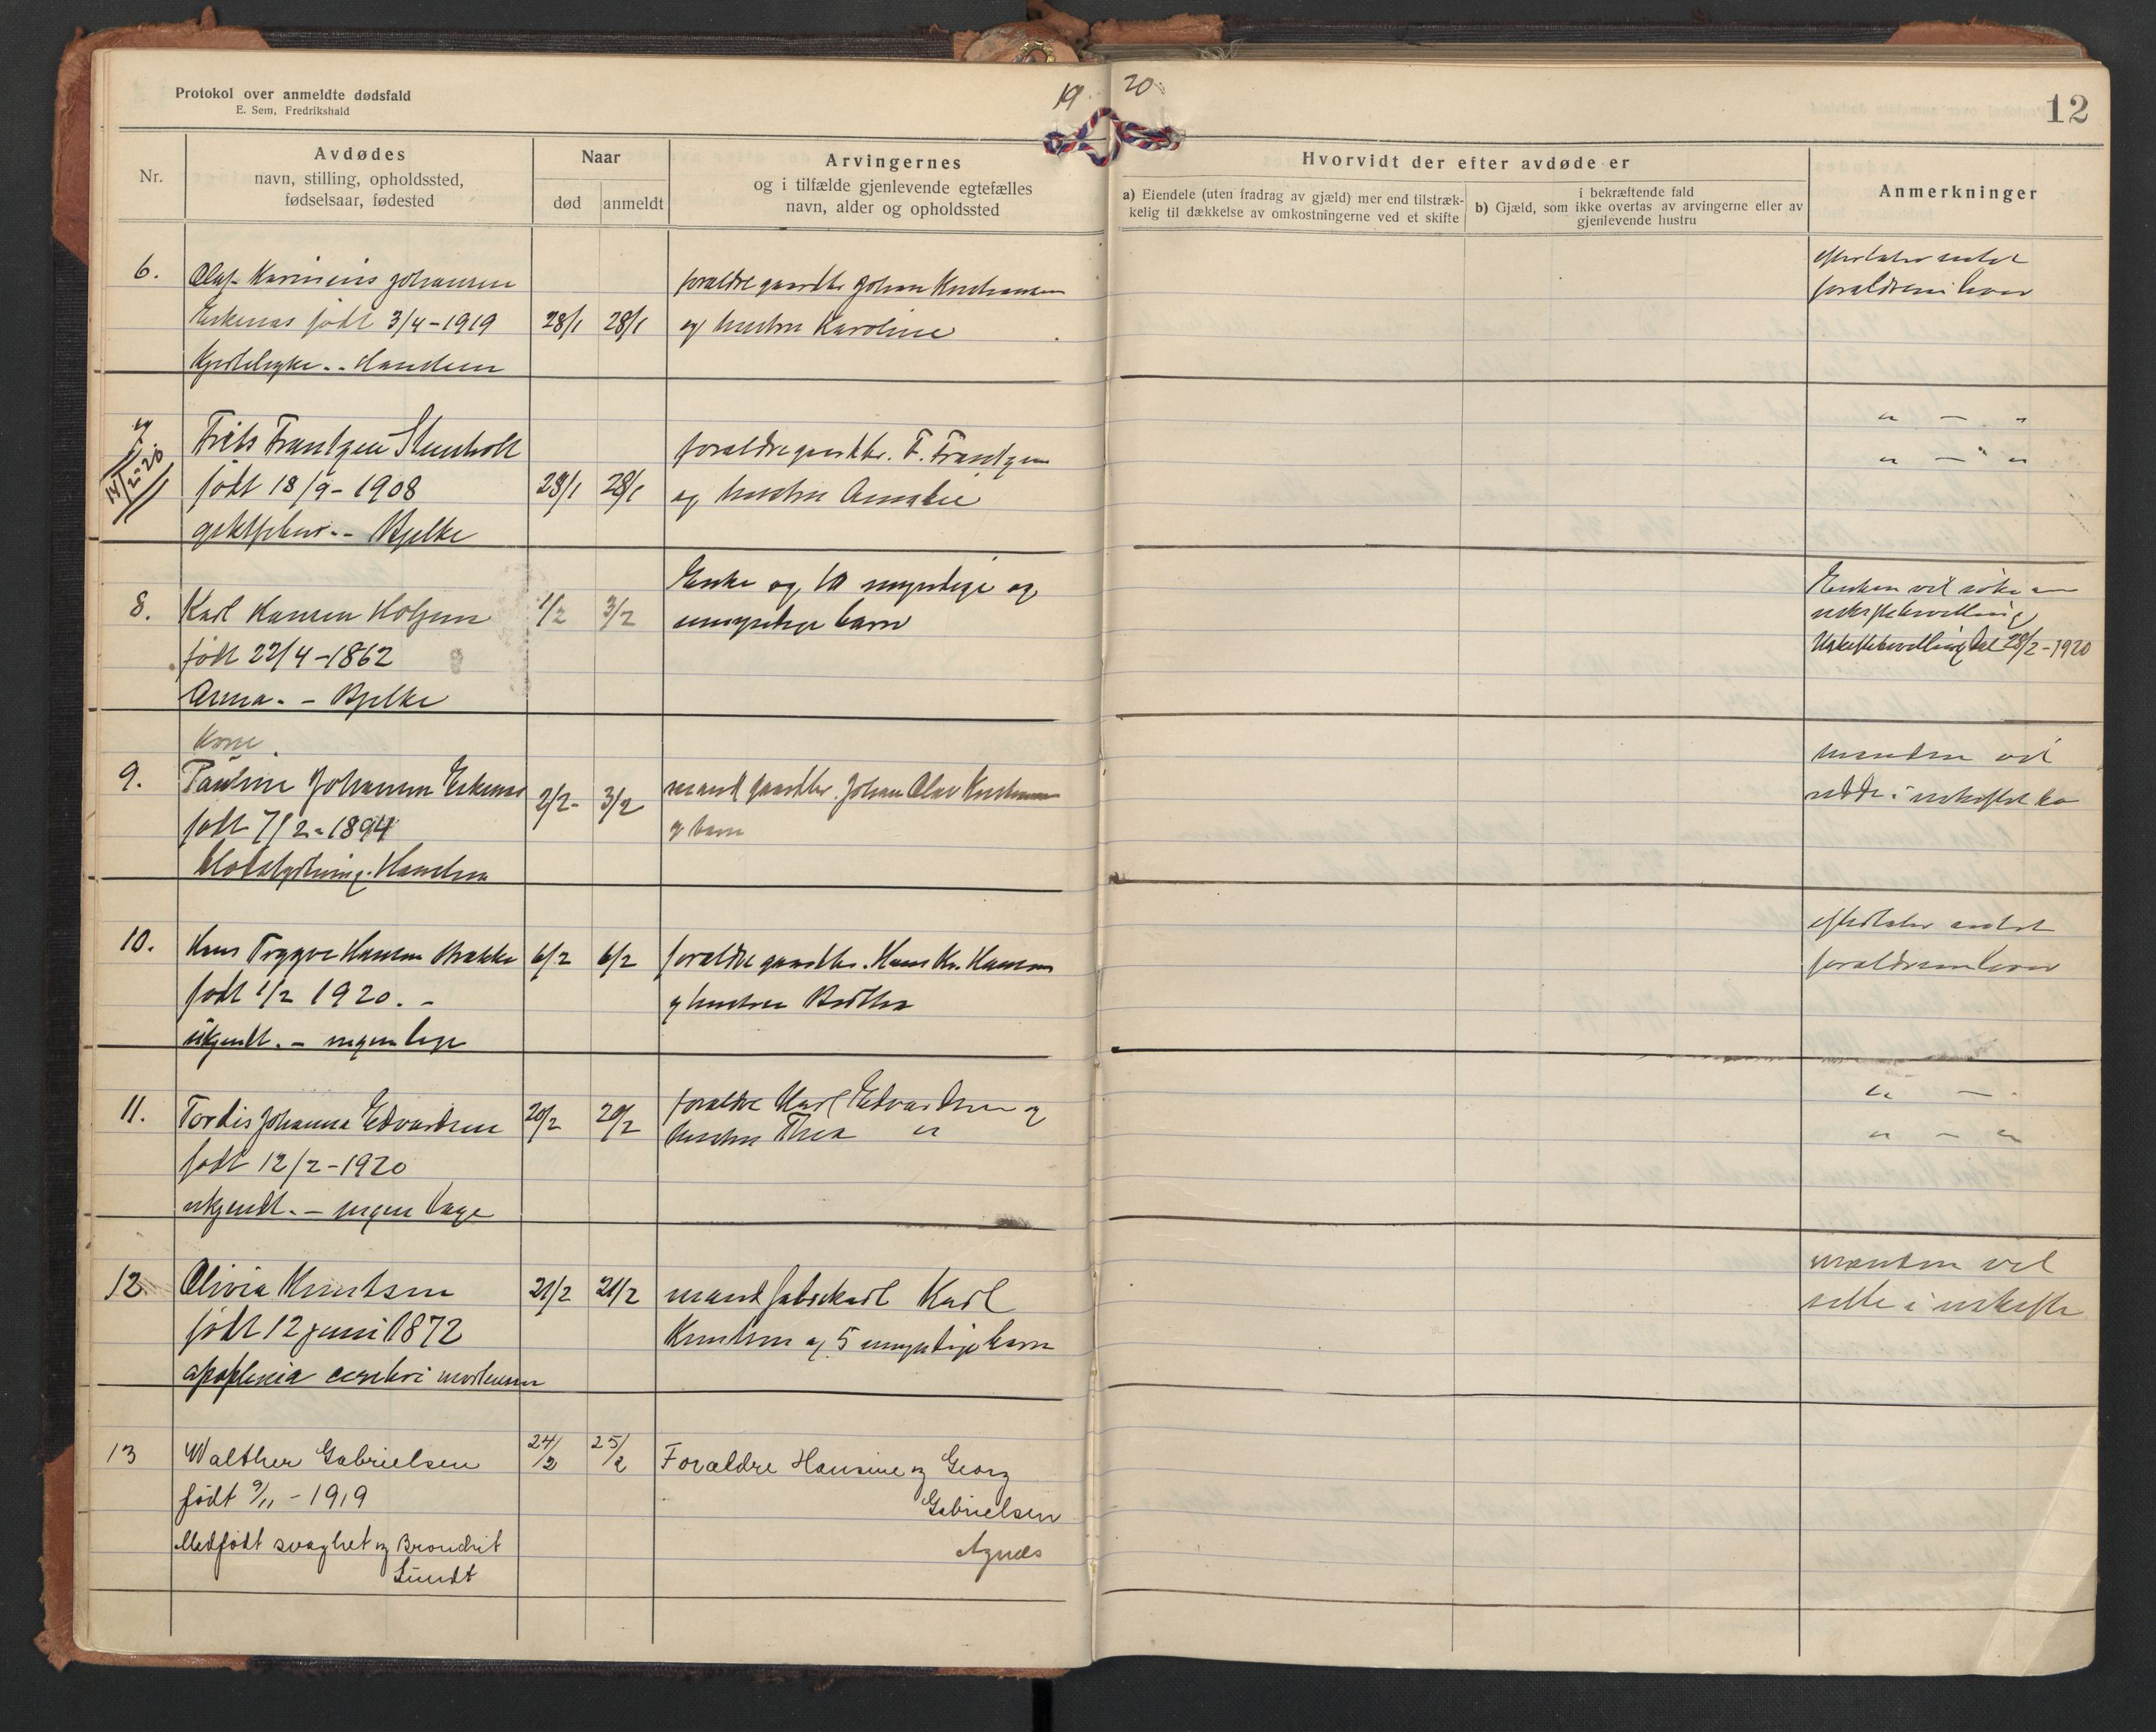 Protokol over anmeldte dødsfald
E. Sem, Fredrikshald
19 20
12
Nr.
Avdødes
navn, stilling, opholdssted,
fødselsaar, fødested
Naar
død anmeldt
Arvingernes
og i tilfælde gjenlevende egtefælles
navn, alder og opholdssted
Hvorvidt der efter avdøde er
a) Eiendele (uten fradrag av gjæld) mer end tilstræk-
kelig til dækkelse av omkostningerne ved et skifte
i bekræftende fald
b) Gjæld, som ikke overtas av arvingerne eller av
gjenlevende hustru
Anmerkninger
6.
Olaf Johansen
Eskenæs født 3/4-1919
28/1 28/1
forældre gaardbr. Johan Kristiansen
og hustru Karoline
efterlater intet
forældrene lever
7.
14/2-20
Frits Frantzen Stenholt
født 18/9-1908
Bjelke
28/1 28/1
forældre gaardbr. F. Frantzen
og hustru Amalie
" — "
" — " "
8.
Karl Hansen
født 22/4-1862
Bjelke
1/2 3/2
Enke og 10 myndige og
umyndige barn
Enken vil søke om
uskiftebevilling
Uskiftebevilling dat 28/2-1920
9.
Kone
Pauline Johansen Eskenæs
født 7/2-1894
2/2- 3/2
mand gaardbr. Johan Olav Kristiansen
og barn
manden vil
sidde i uskiftet bo
10.
Hans Trygve Hansen Brække
født 1/2 1920. -
ukjendt. - ingen læge
6/2 6/2
forældre gaardbr. Hans Kr. Hansen
og hustru Bertha
efterlater intet
forældrene lever
11.
Tordis Johanna Edvardsen
født 12/2-1920
ukjendt. - ingen læge
20/2 20/2
forældre Karl Edvardsen og
hustru Thea "
" —
" — "
12
Olivia Knutsen
født 12 juni 1872
apoplexia cerebri Mortensen
21/2 21/2
mand Karl
Knutsen og 5 umyndige barn
manden vil
sitte i uskifte
13
Walther Gabrielsen
født 9/11-1919
Medfødt svaghet og Bronchit
Lundt
24/2 25/2
Forældre Hansine og Georg
Gabrielsen
Agnæs